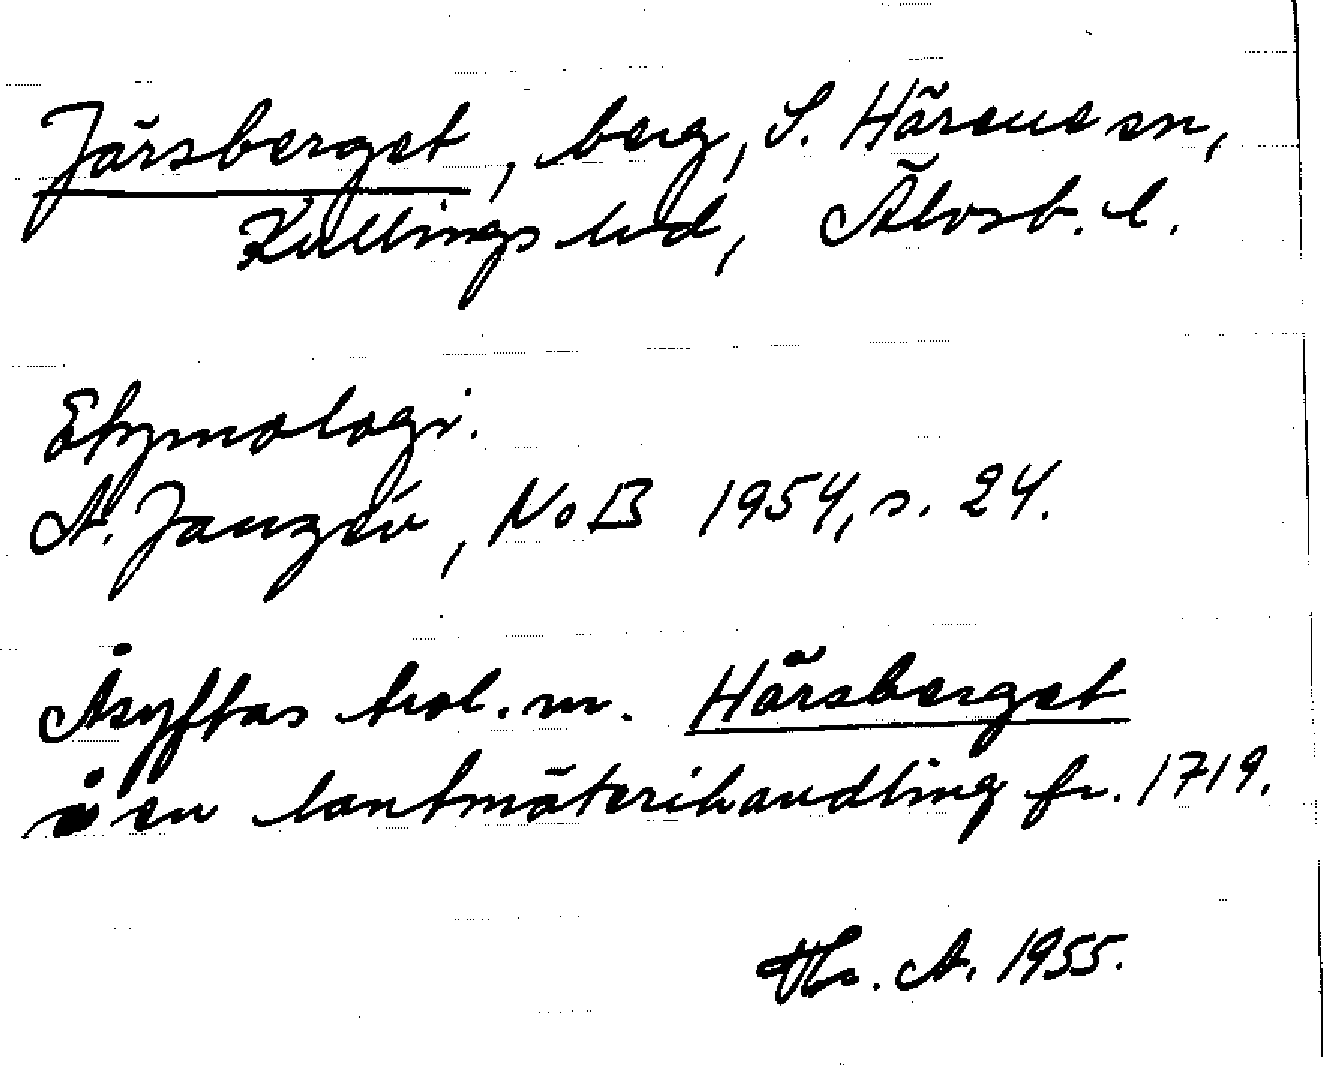 Järsberget, berg, S. Härene sn,
Kullings hd, Älvsb. l.
Etymologi.
A. Janzén, NoB 1954, s. 24.
Åsyftas trol. m. Härsberget
i en lantmäterihandling fr. 1719.
Th. A. 1955.